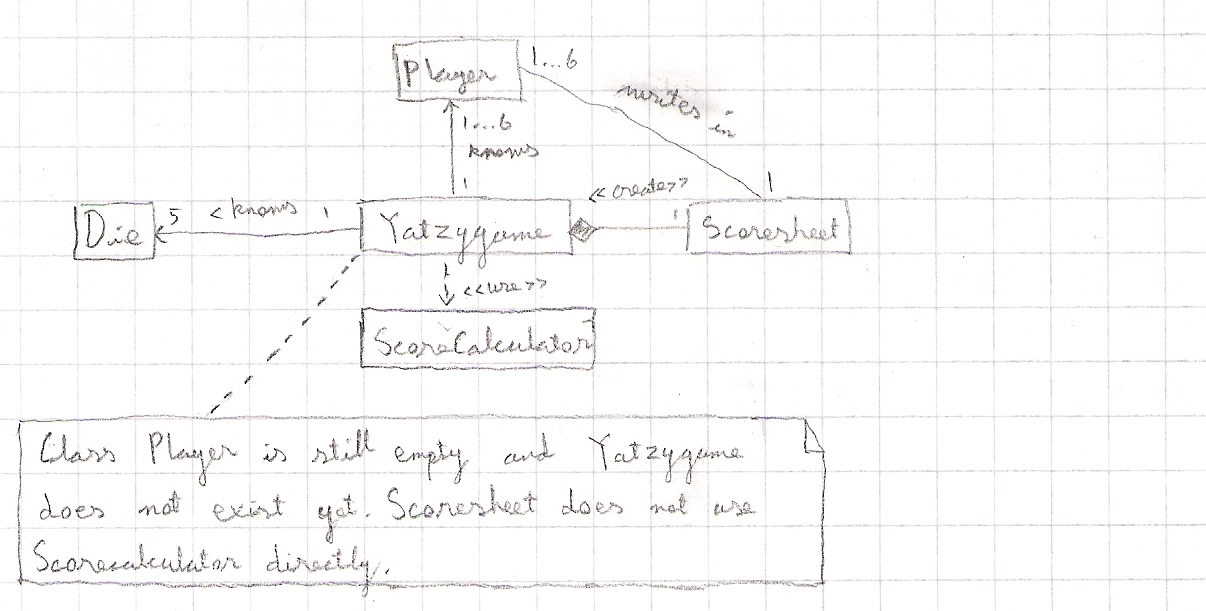 Player
1...6
writes in
1...6
knows
1
1
<<create>>
Die
5
< knows
1
Yatzygame
1
Scoresheet
<<use>>
ScoreCalculator
Class Player is still empty and Yatzygame
does not exist yet. Scoresheet does not use
Scorecalculator directly.